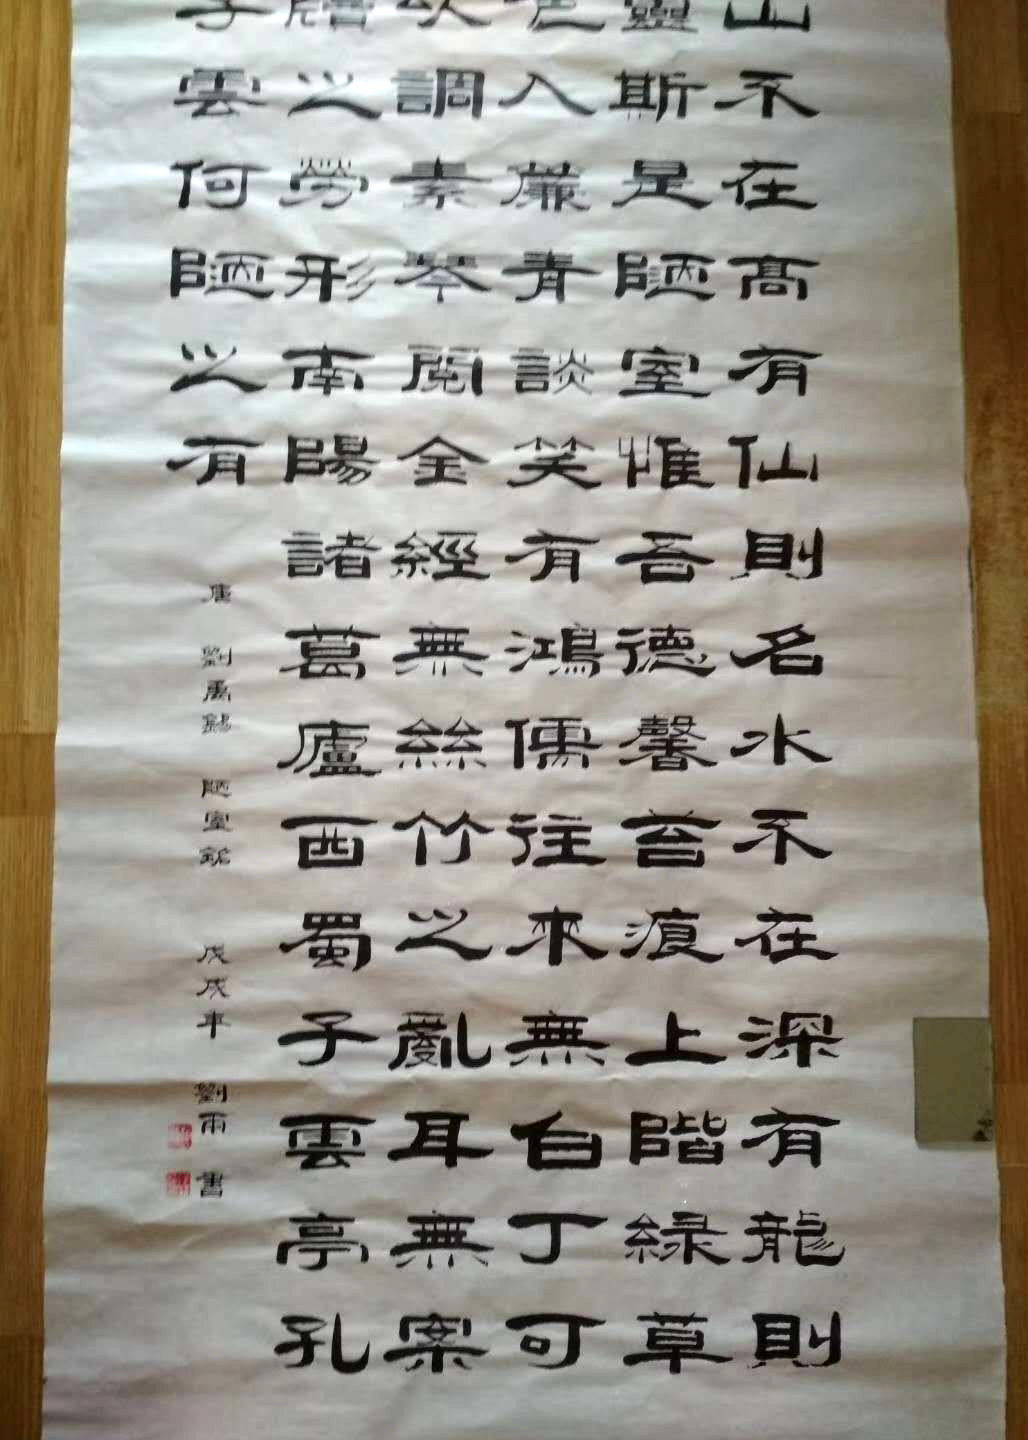 山不在髙有仙則名水不在深有龍則
靈斯是陋室惟吾德馨苔痕上階緑草
色入簾青談笑有鴻儒往來無白丁可
以調素琴閱金經無絲竹之亂耳無案
牘之勞形南陽諸葛廬西蜀子雲亭孔
子雲何陋之有
唐 劉禹錫 陋室銘 戊戌年 劉雨 書